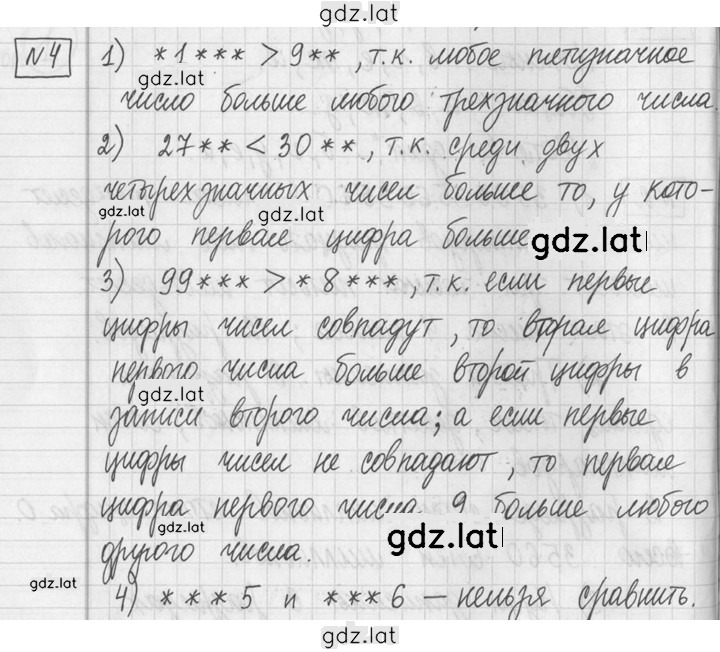 gdz.lat
№4 1) *1*** > 9** , т.к. любое пятизначное
gdz.lat
число больше любого трехзначного числа.
2) 27** < 30** , т.к. среди двух
четырехзначных чисел больше то, у кото-
gdz.lat gdz.lat
рого первая цифра больше
gdz.lat
3) 99*** > *8***, т.к. если первые
цифры чисел совпадут, то вторая цифра
первого числа больше второй цифры в
gdz.lat
записи второго числа; а если первые
цифры чисел не совпадают, то первая
цифра первого числа 9 больше любого
gdz.lat
другого числа.
gdz.lat
gdz.lat
4) ***5 и ***6 – нельзя сравнить.
gdz.lat